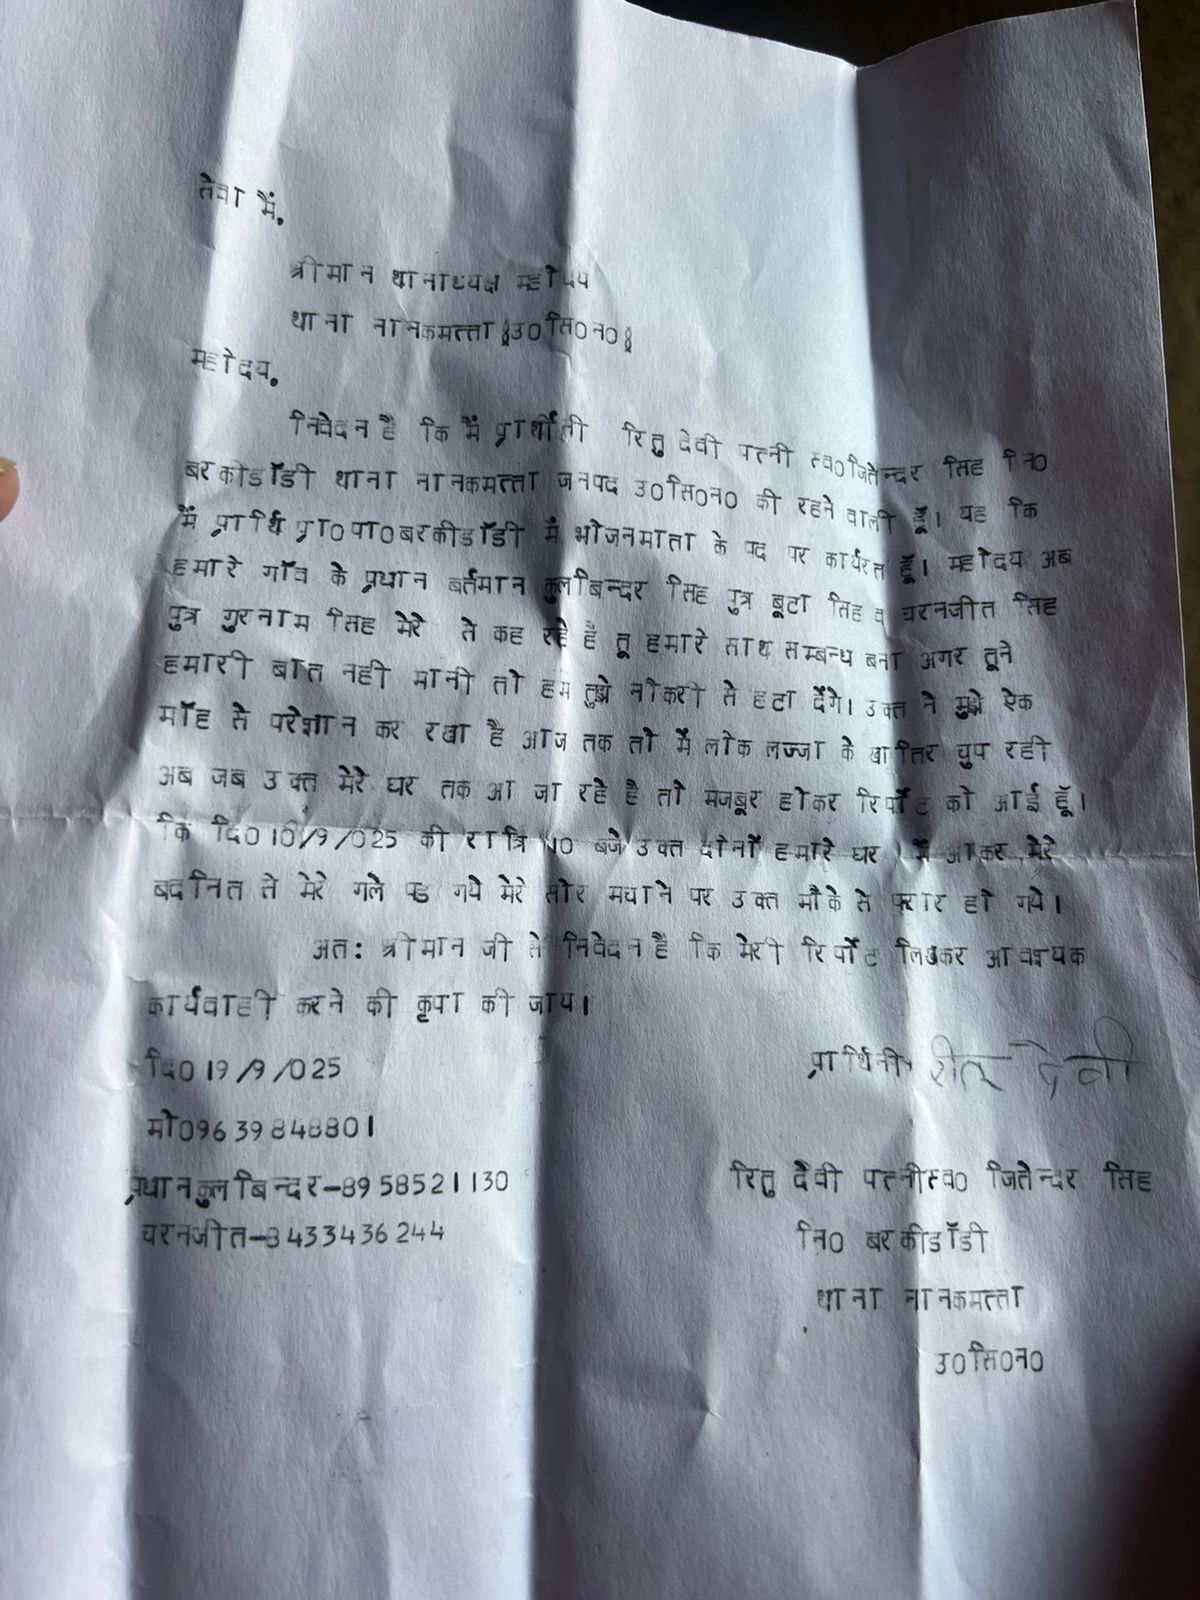 सेवा में,
श्रीमान थानाध्यक्ष महोदय
थाना नानकमत्ता (उ0सि0न0)
महोदय,
निवेदन है कि मैं प्रार्थीनी रितु देवी पत्नी स्व0जितेन्दर सिंह नि0
बरकीडॉंडी थाना नानकमत्ता जनपद उ0सि0न0 की रहने वाली हूँ। यह कि
मैं प्रार्थि प्रा0पा0बरकीडॉंडी में भोजनमाता के पद पर कार्यरत हूँ। महोदय अब
हमारे गॉंव के प्रधान बर्तमान कुलबिन्दर सिंह पुत्र बूटा सिंह व चरनजीत सिंह
पुत्र गुरनाम सिंह मेरे से कह रहे है तू हमारे साथ सम्बन्ध बना अगर तूने
हमारी बात नही मानी तो हम तुझे नौकरी से हटा देंगे। उक्त ने मुझे ऐक
मॉंह से परेशान कर रखा है आज तक तो मैं लोक लज्जा के खातिर चुप रही
अब जब उक्त मेरे घर तक आ जा रहे है तो मजबूर होकर रिर्पोट को आई हूँ।
कि दि0 /9/025 की रात्रि 10 बजे उक्त दोनों हमारे घर में आकर मेरे
बदनित से मेरे गले पड गये मेरे सोर मचाने पर उक्त मौके से फरार हो गये।
अत: श्रीमान जी से निवेदन है कि मेरी रिर्पोट लिखकर आवश्यक
कार्यवाही करने की कृपा की जाय।
दि0 19/9/025
प्रार्थिनी रीतू देवी
मो09639848801
प्रधानकुलबिन्दर-8958521130
रितु देवी पत्नीस्व0 जितेन्दर सिंह
चरनजीत-8433436244
नि0 बरकीडॉंडी
थाना नानकमत्ता
उ0सि0न0